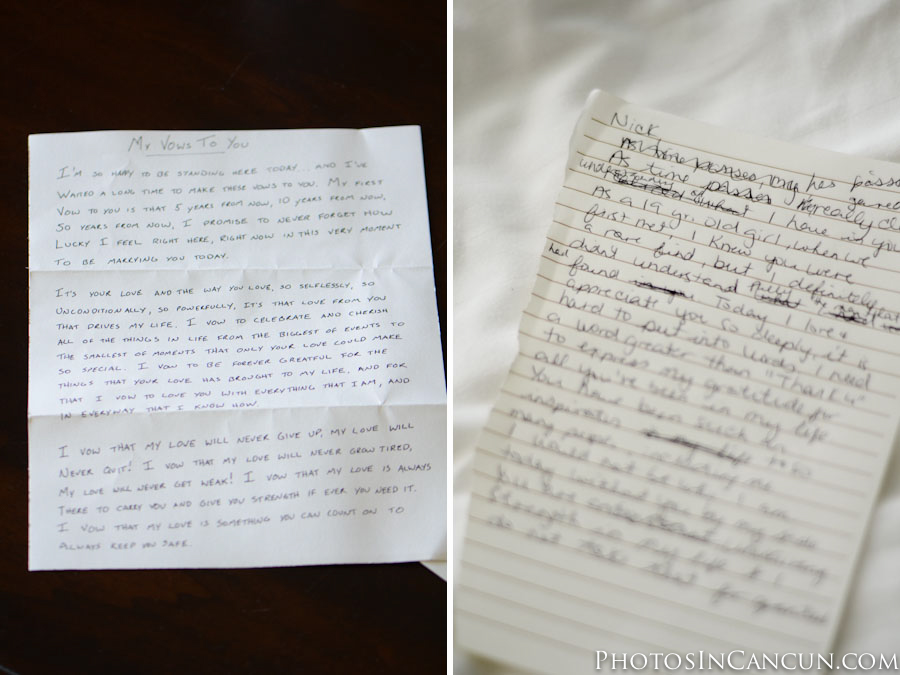 My Vows To You
I'm so happy to be standing here today... and I've
waited a long time to make these vows to you. My first
vow to you is that 5 years from now, 10 years from now,
50 years from now, I promise to never forget how
lucky I feel right here, right now in this very moment
to be marrying you today.
It's your love and the way you love, so selflessly, so
unconditionally, so powerfully, it's that love from you
that drives my life. I vow to celebrate and cherish
all of the things in life from the biggest of events to
the smallest of moments that only your love could make
so special. I vow to be forever greatful for the
things that your love has brought to my life, and for
that I vow to love you with everything that I am, and
in everyway that I know how.
I vow that my love will never give up, my love will
never quit! I vow that my love will never grow tired,
my love will never get weak! I vow that my love is always
there to carry you and give you strength if ever you need it.
I vow that my love is something you can count on to
always keep you safe.
Nick
As time passes, my has passed
under I have in you
As a 19 yr. old girl, when we
first met I knew you were
a rare find but I definitely
didn't understand fully
had found Today I love &
appreciate you so deeply it is
hard to put into words. I need
a word greater than "Thank u"
to express my gratitude for
all you've been in my life
You have been such an
inspiration to so
many people
I would not be who I am
today without you by my side
You are
strength in my life & I
do not take that for granted
PhotosInCancun.com